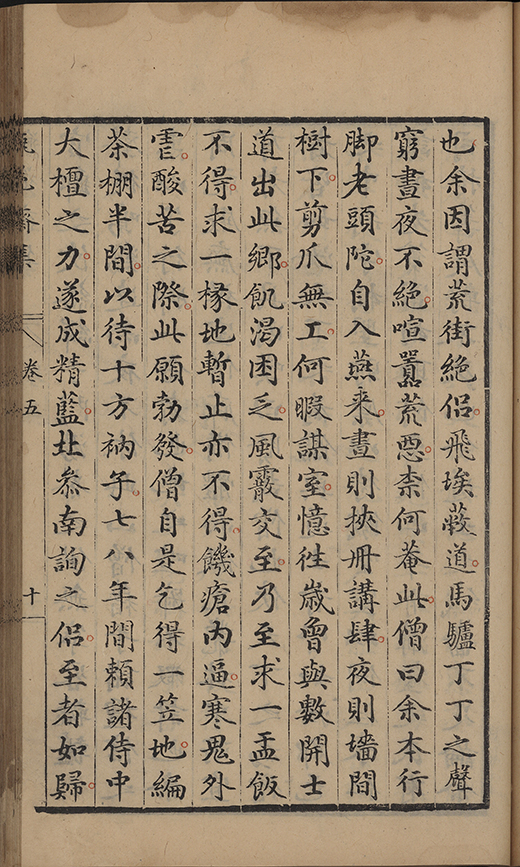 也余因謂荒街絶侶飛埃蔽道馬驢丁丁之聲
窮晝夜不絶喧囂荒惡柰何菴此僧曰余本行
脚老頭陀自入燕来晝則挾冊講肆夜則墻間
樹下剪爪無工何暇謀室憶往歲曾與數開士
道出此鄉飢渴困乏風霰交至乃至求一盂飯
不得求一椽地暫止亦不得饑瘡內逼寒鬼外
霍酸苦之際此願勃發僧自是乞得一笠地編
茶棚半間以待十方衲子七八年間頼諸侍中
大檀之力遂成精藍北叅南詢之侶至者如歸
卷五
十